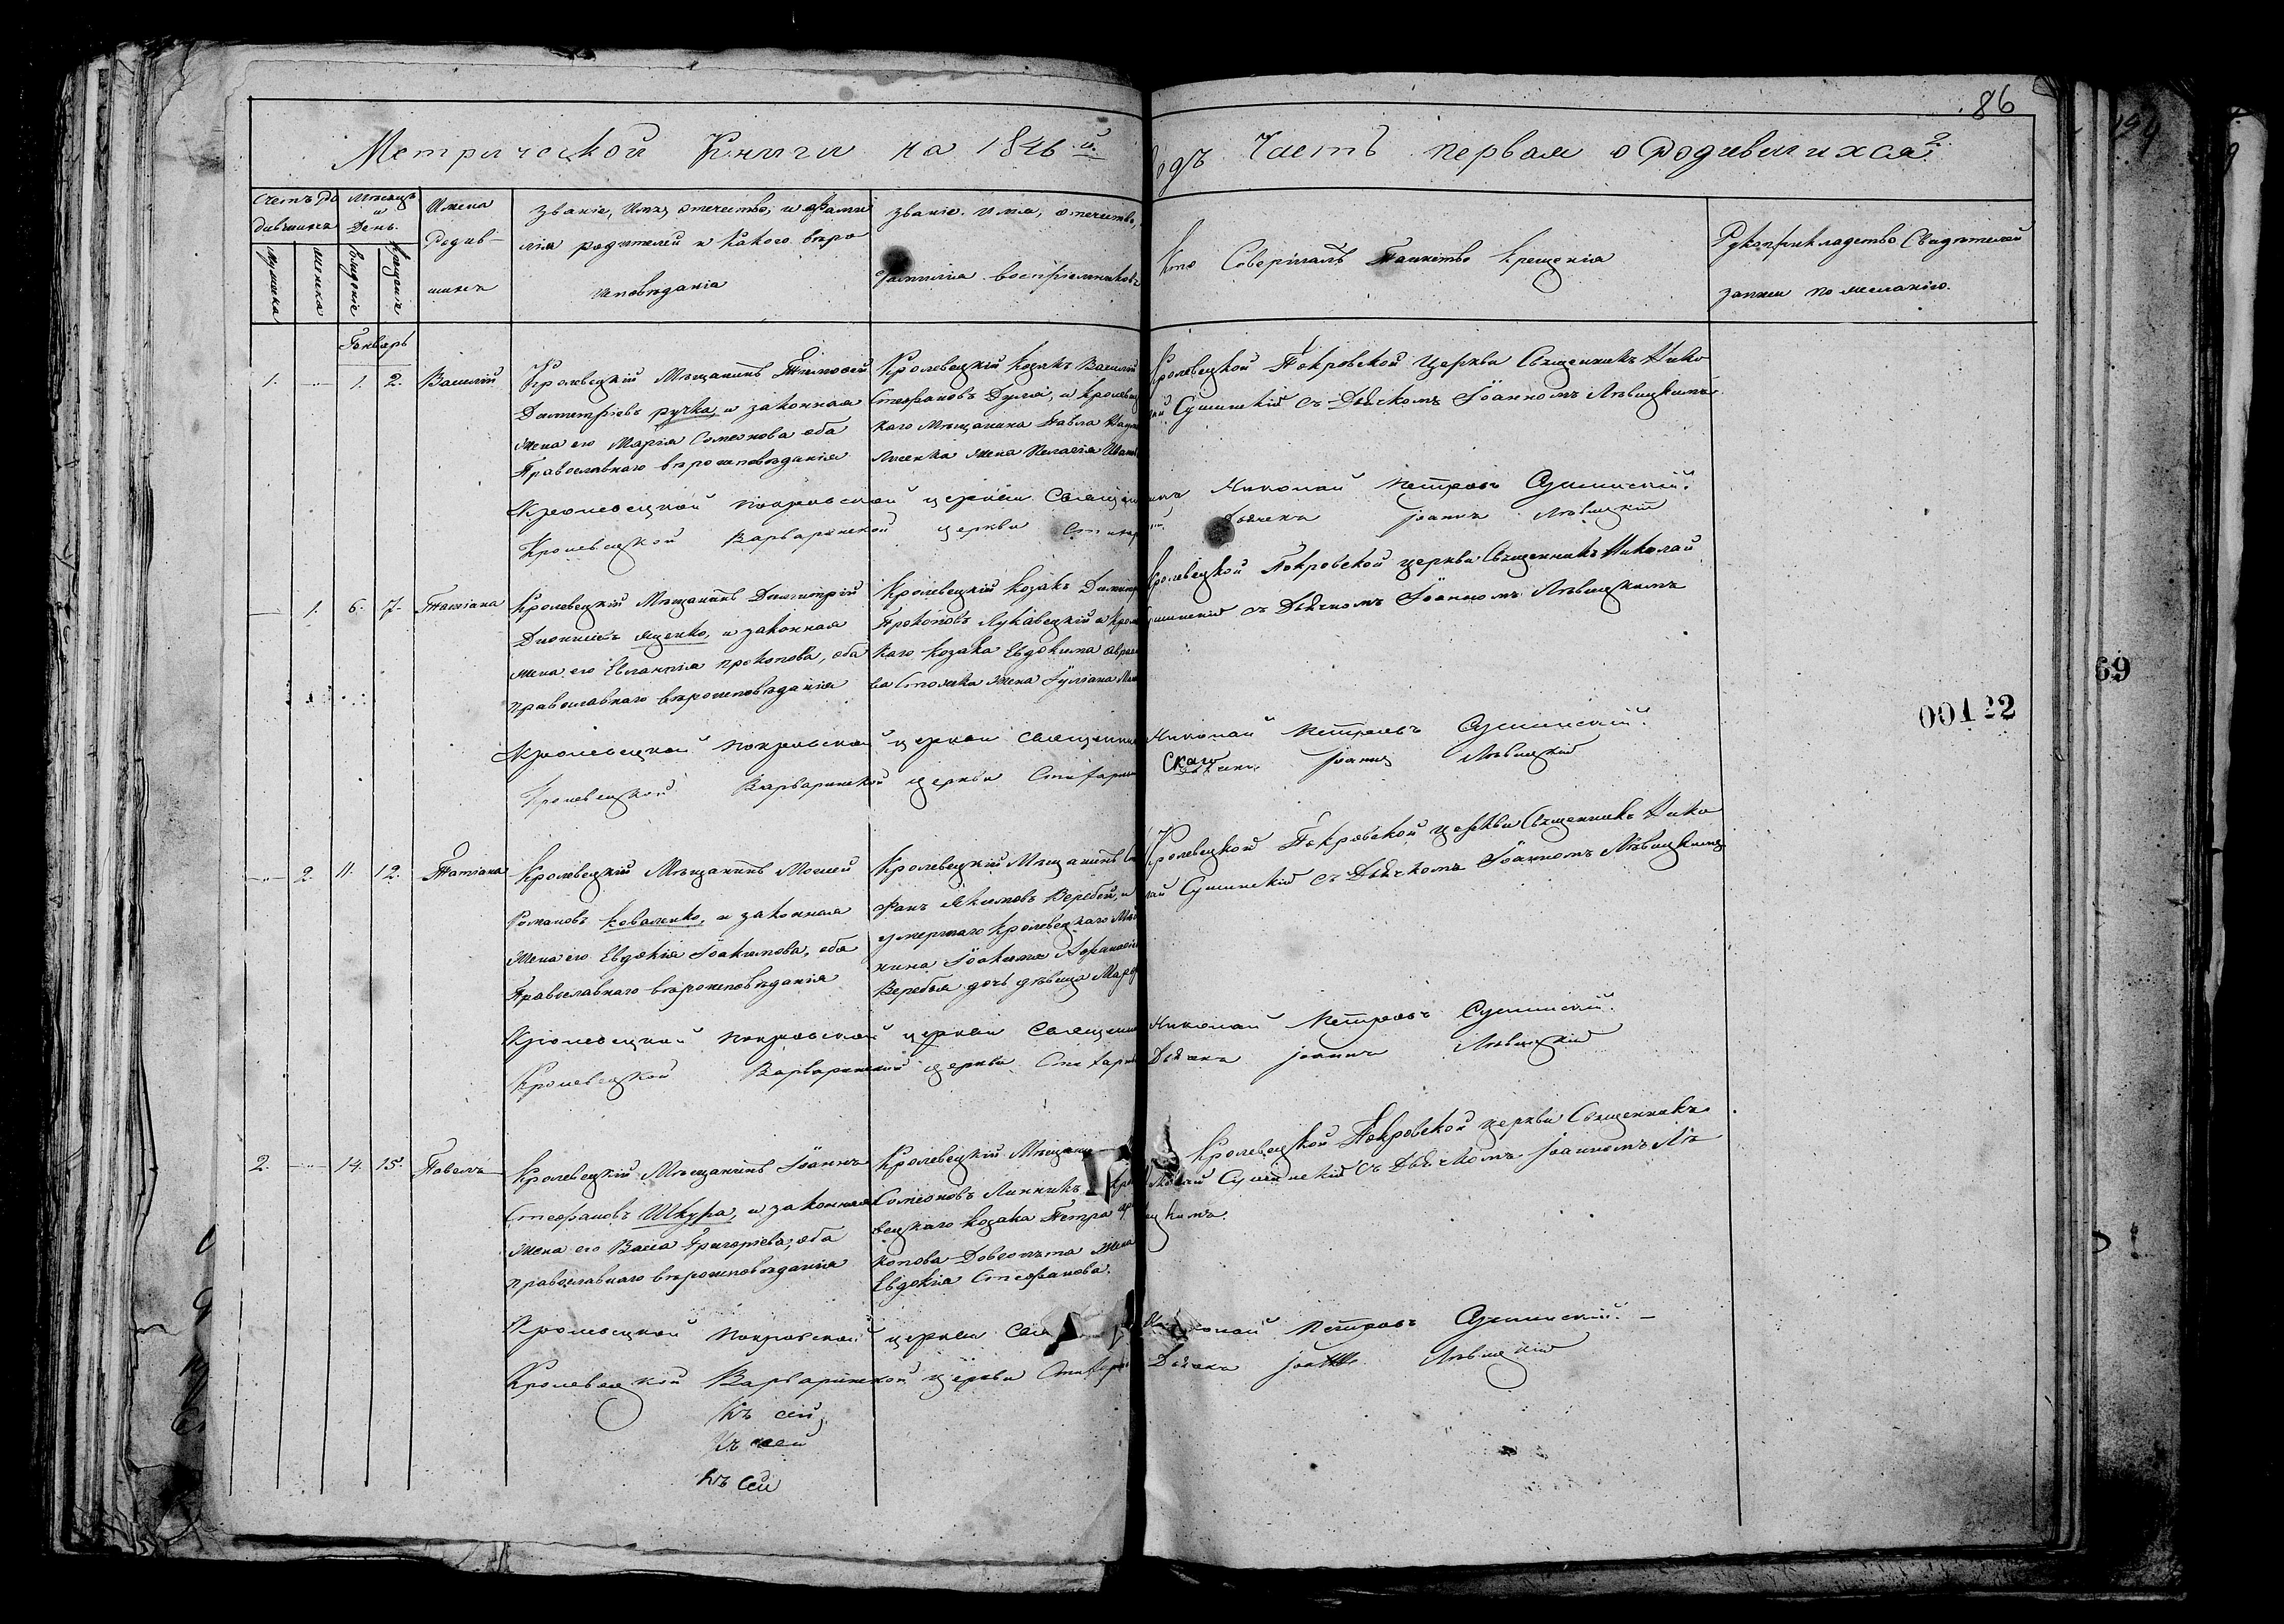 86
Метрической Книги на 1846.й годъ Часть первая о Родившихся
Счетъ Ро
дившихся
Мужеска
Женска
Мѣсяцъ
и
День.
Рожденіе
Крещеніе
Имена
Родив-
шихъ
Званіе, Имя, отечество, и фами
лія родителей и какого вѣро
исповѣданія
Званіе. имя, отечество,
Фамилія воспріемниковъ
Кто Совершалъ Таинство Крещенія
Рукоприкладство Свидѣтелей
записи по желанію.
Январь
1. 1. 2. Василій
Кролевецкій Мѣщанинъ Тимофей
Димитріевъ ручка, и законная
жена его Марія Симеонова оба
Православнаго вѣроисповѣданія
Кролевецкій Козакъ Василій
Стефановъ Дуля, и кролевец
каго Мѣщанина Павла
Лисенка жена Пелагія
Кролевецкой Покровской Церкви Священникъ Нико
лай Сушинскій съ Дьячкомъ Іоанномъ Лѣвицкимъ
Кролевецкой Покровской церкви Священникъ Николай Петровъ Сушинскій.
Кролевецкой Варваринской церкви Дьячекъ Іоаннъ Лѣвицкій
1. 6. 7. Татіана
Кролевецкій Мѣщанинъ Димитрій
Діонисіевъ яценко, и законная
жена его Евлампія прокопова, оба
православнаго вѣроисповѣданія
Кролевецкій Козакъ
Прокоповъ Лукавецкій и
каго козака Евдокима
ва Столика жена Іуліана
Кролевецкой Покровской церкви Священникъ Николай
Сушинскій съ Дьячкомъ Іоанномъ Лѣвицкимъ
Кролевецкой Покровской церкви Священникъ Николай Петровъ Сушинскій.
Кролевецкой Варваринской церкви Дьячекъ Іоаннъ Лѣвицкій
00122
2. 11. 12. Татіана
Кролевецкій Мѣщанинъ Моисей
Романовъ Коваленко, и законная
жена его Евдокія Іоакимова, оба
Православнаго вѣроисповѣданія
Кролевецкій Мѣщанинъ
фанъ Якимовъ Веребей, и
умершаго кролевецкаго
нина Іоакима
Веребья дочь дѣвица
Кролевецкой Покровской церкви Священникъ Нико
лай Сушинскій съ Дьячкомъ Іоанномъ Лѣвицкимъ
Кролевецкой Покровской церкви Священникъ Николай Петровъ Сушинскій.
Кролевецкой Варваринской церкви Дьячекъ Іоаннъ Лѣвицкій
2. 14. 15. Павелъ
Кролевецкій Мѣщанинъ Іоаннъ
Стефановъ Шкура, и законная
жена его Васса Григорьева, оба
православнаго вѣроисповѣданія
Кролевецкій
Симеоновъ Линникъ
вецкаго козака Петра
копова Довгопята жена
Евдокія Стефанова.
Кролевецкой Покровской церкви Священникъ
Николай Сушинскій съ Дьячкомъ Іоанномъ Лѣ
вицкимъ.
Кролевецкой Покровской церкви Николай Петровъ Сушинскій.
Кролевецкой Варваринской церкви Дьячекъ Лѣвицкій
Къ сей
Къ сей
Къ сей
69